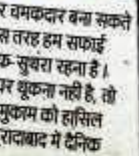 र चमकदार बना सकते
स तरह हम सफाई
फ-सुथरा रहना है।
पर थूकना नहीं है, तो
मुकाम को हासिल
रादाबाद में दैनिक